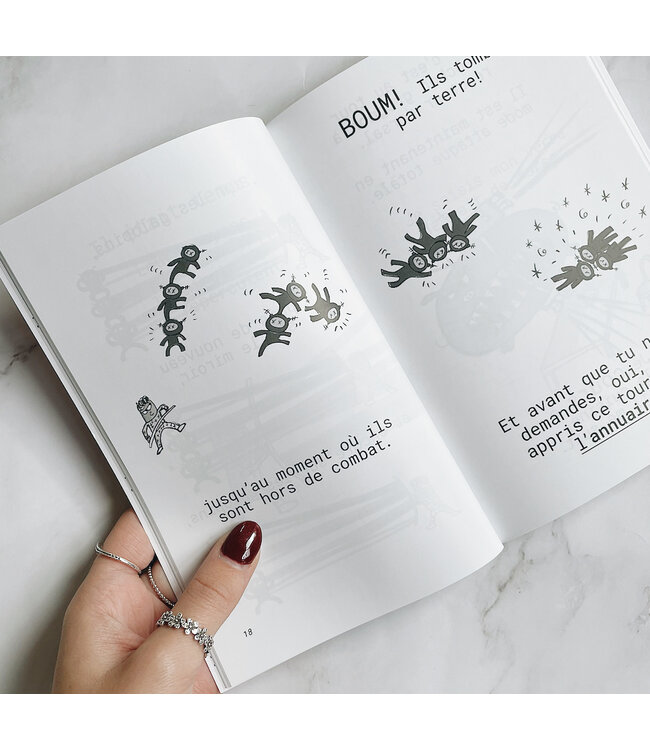 jusqu'au moment où ils
sont hors de combat.
18
BOUM! Ils
par terre!
Et avant que tu
demandes, oui,
appris ce
l'annuaire